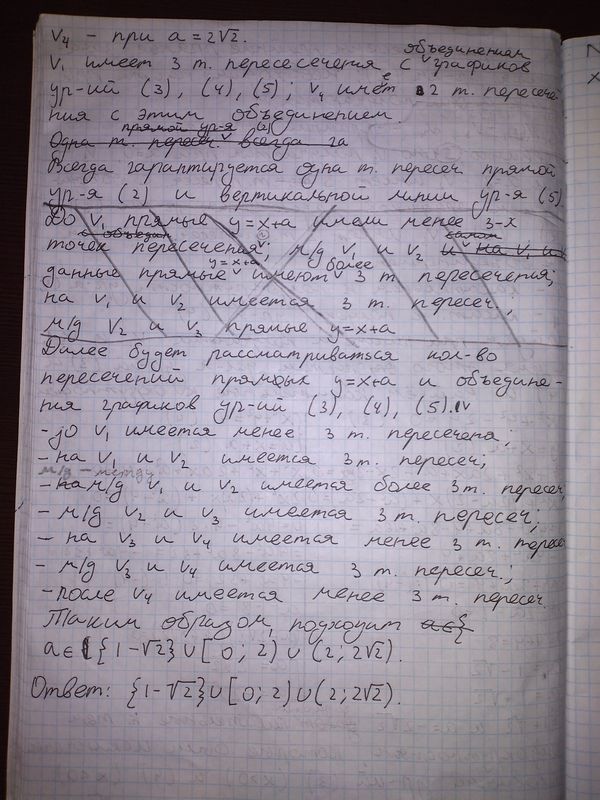 V₄ – при a = 2√2.
объединением
V₁ имеет 3 т. пересечения с графиков
ур-ий (3), (4), (5); V₄ имеет 2 т. пересече-
ния с этим объединением.
прямой ур-я (2)
Одна т. пересеч. всегда га
Всегда гарантируется одна т. пересеч прямой
ур-я (2) и вертикальной линии ур-я (5).
До V₁ прямые y=x+a имели менее 3-х
с объедин
точек пересечения; м/д V₁ и V₂ и на V₁ и
y=x+a более
данные прямые имеют 3 т. пересечения;
на V₁ и V₂ имеется 3 т. пересеч.;
м/д V₂ и V₃ прямые y=x+a
Далее будет рассматриваться кол-во
пересечений прямых y=x+a и объедине-
ния графиков ур-ий (3), (4), (5).
- до V₁ имеется менее 3 т. пересечена;
- на V₁ и V₂ имеется 3 т. пересеч;
м/д - между
- на м/д V₁ и V₂ имеется более 3 т. пересеч
- м/д V₂ и V₃ имеется 3 т. пересеч;
- на V₃ и V₄ имеется менее 3 т. пересе
- м/д V₃ и V₄ имеется 3 т. пересеч.;
- после V₄ имеется менее 3 т. пересеч.
Таким образом, подходит a∈{
a∈ {1-√2}∪[0; 2)∪(2; 2√2).
Ответ: {1-√2}∪[0; 2)∪(2; 2√2).